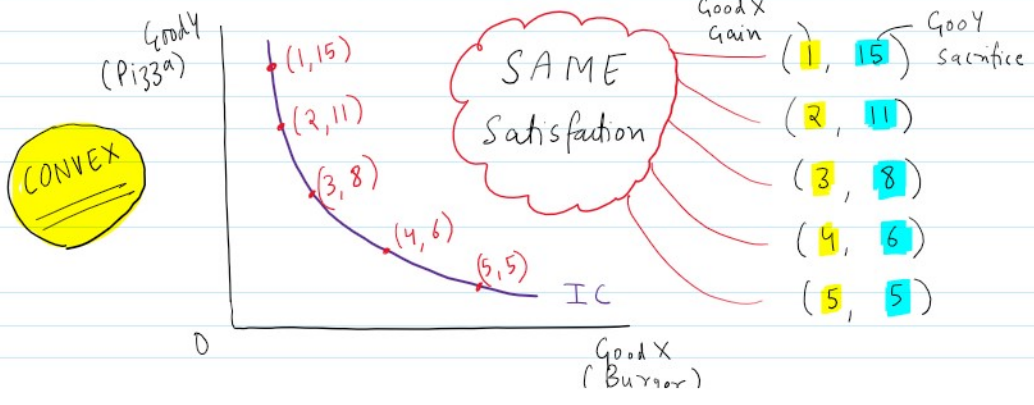 Good Y
(Pizza)
CONVEX
(1,15)
(2,11)
(3,8)
(4,6)
(5,5)
IC
O
Good X
(Burger)
SAME
Satisfaction
Good X
Gain
(1, 15)
Goo Y
Sacrifice
(2, 11)
(3, 8)
(4, 6)
(5, 5)